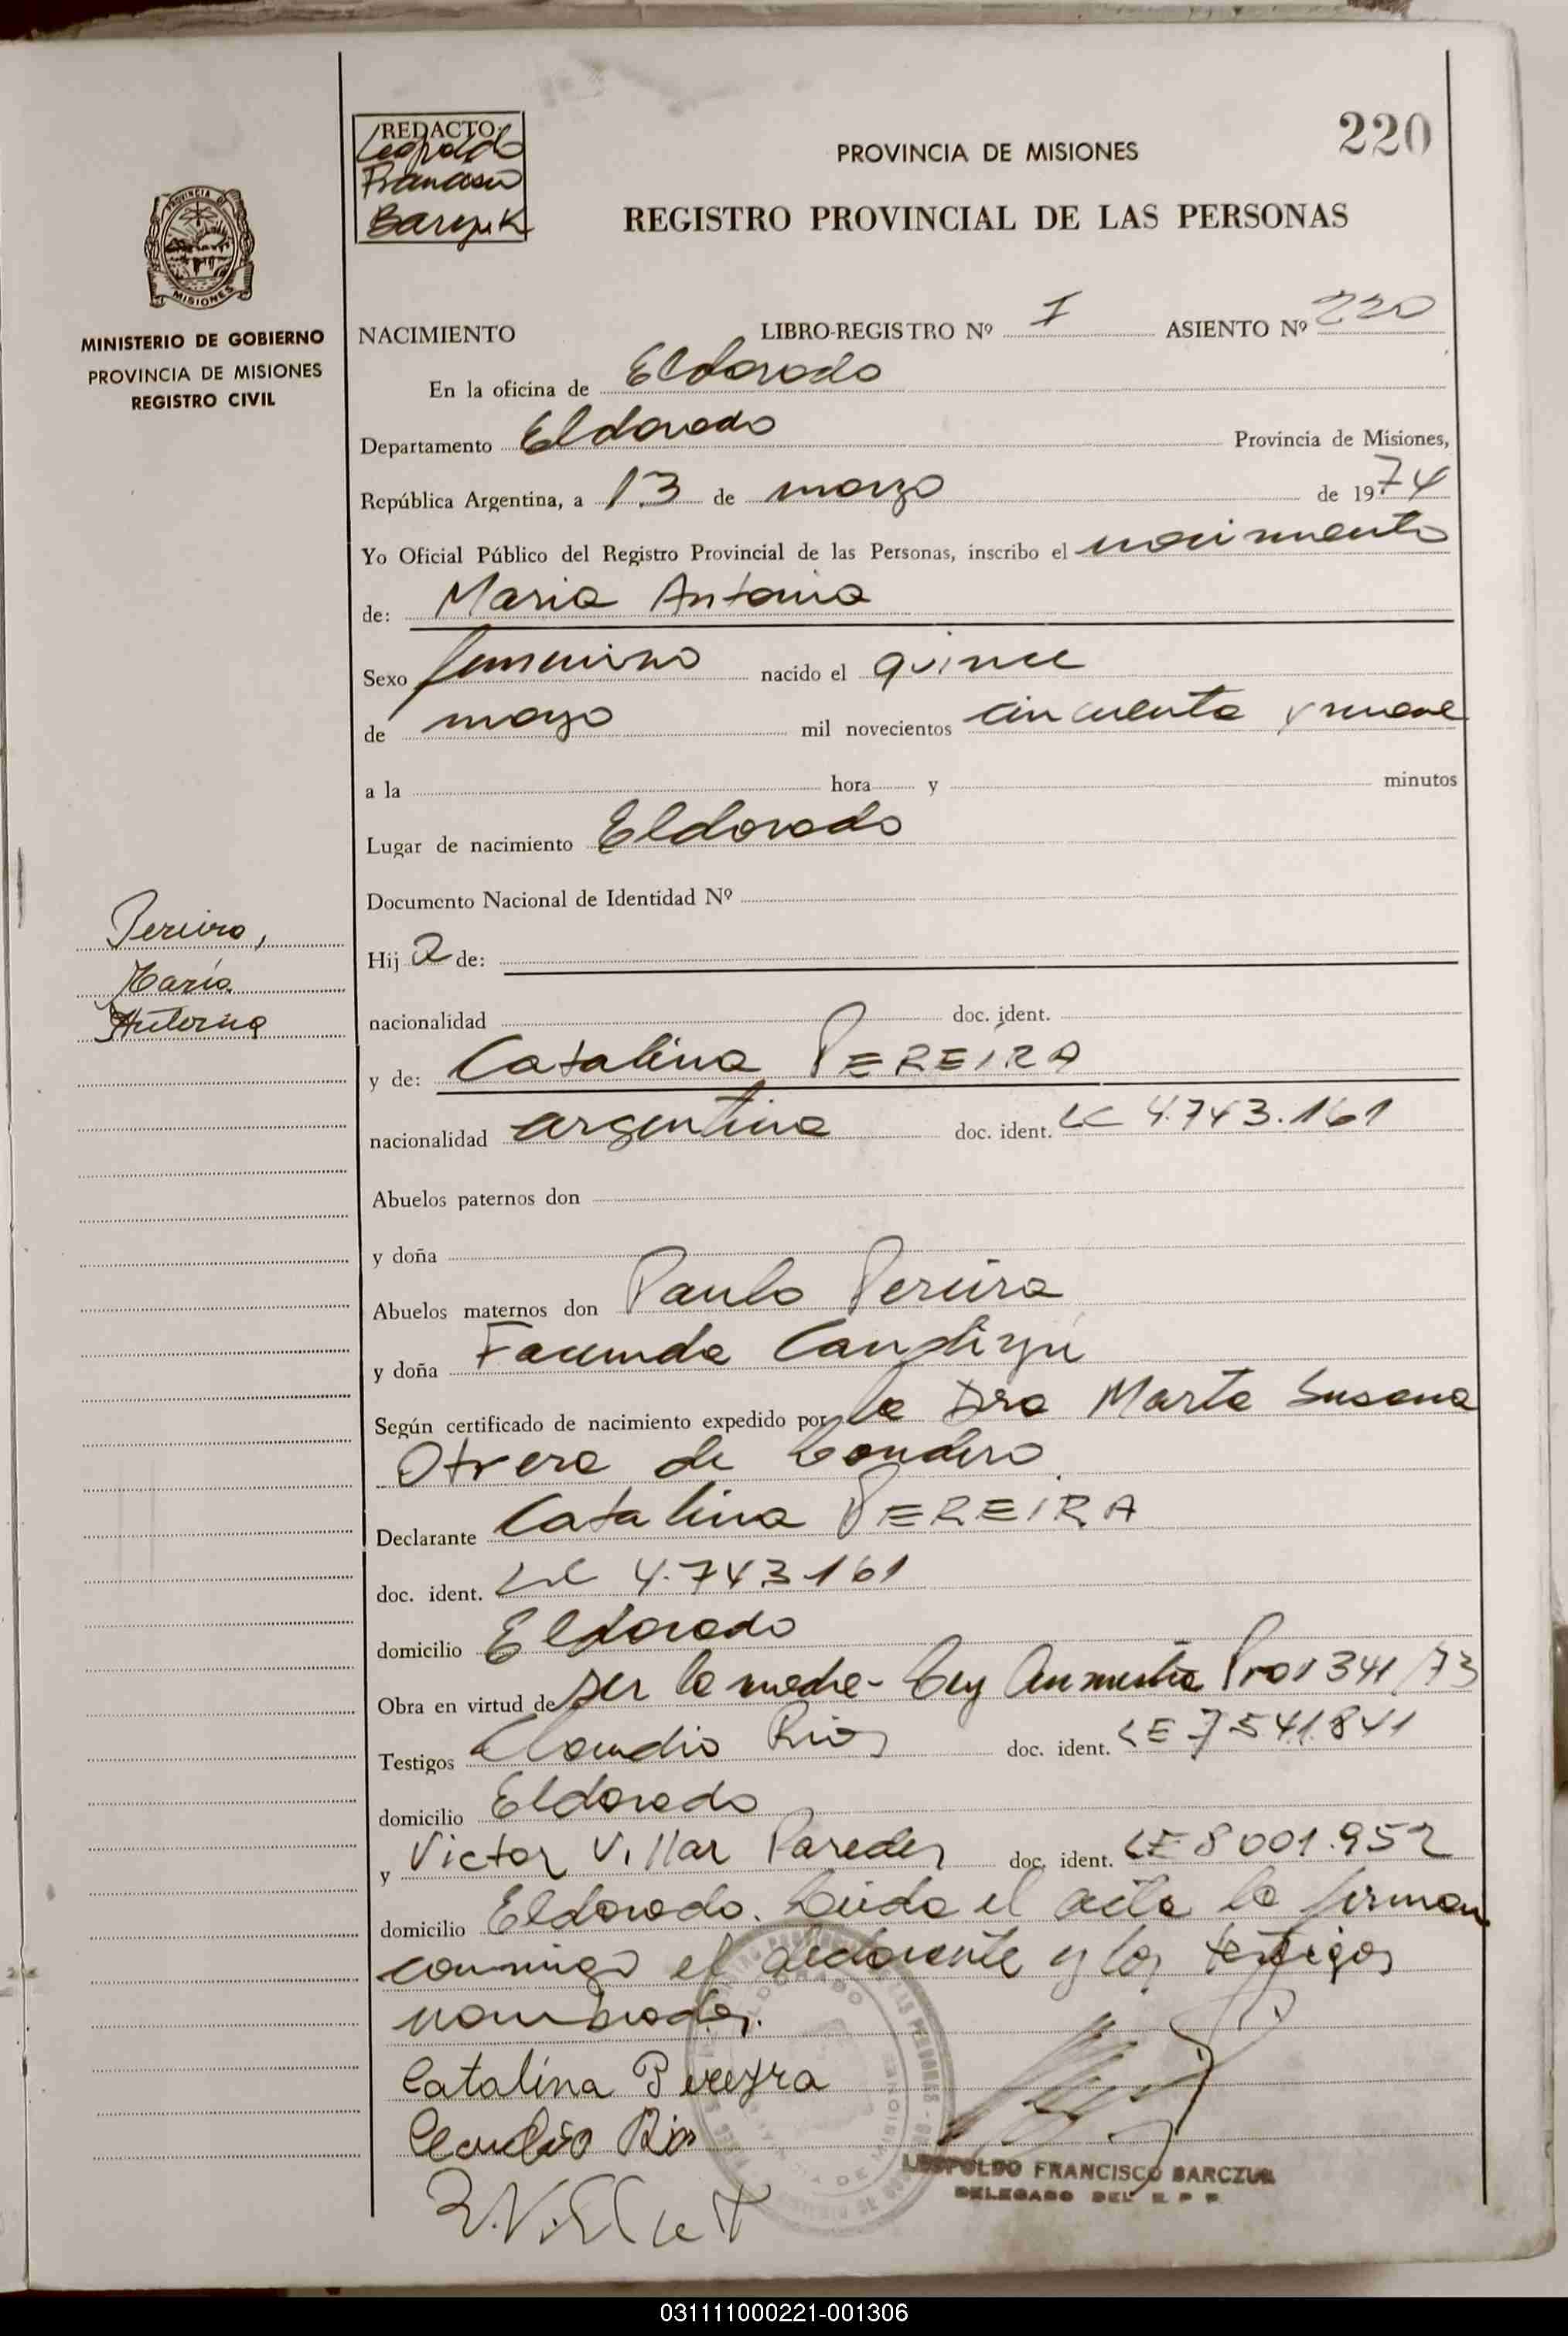 220
REDACTO
Leopoldo
Francisco
Barczuk
PROVINCIA DE MISIONES
REGISTRO PROVINCIAL DE LAS PERSONAS
PROVINCIA DE
MISIONES
MINISTERIO DE GOBIERNO
PROVINCIA DE MISIONES
REGISTRO CIVIL
NACIMIENTO LIBRO-REGISTRO Nº I ASIENTO Nº 220
En la oficina de Eldorado
Departamento Eldorado Provincia de Misiones,
República Argentina, a 13 de marzo de 1974
Yo Oficial Público del Registro Provincial de las Personas, inscribo el nacimiento
de: Maria Antonia
Sexo femenino nacido el quince
de mayo mil novecientos cincuenta y nueve
a la hora y minutos
Lugar de nacimiento Eldorado
Documento Nacional de Identidad Nº
Pereira,
María
Antonia
Hij a de:
nacionalidad doc. ident.
y de: Catalina PEREIRA
nacionalidad argentina doc. ident. LC 4.743.161
Abuelos paternos don
y doña
Abuelos maternos don Paulo Pereira
y doña Facunda
Según certificado de nacimiento expedido por la Dra Marta Susana
de
Declarante Catalina PEREIRA
doc. ident. LC 4.743.161
domicilio Eldorado
Obra en virtud de ser la madre- Ley Amnistia Prov 341/73
Testigos Claudio Rios doc. ident. LE 7541.841
domicilio Eldorado
y Victor Villar Paredes doc. ident. LE 8001.952
domicilio Eldorado. Leida el acta la firman
conmigo el declarante y los testigos
nombrados.
Catalina Pereyra
Claudio Rios
LEOPOLDO FRANCISCO BARCZUK
DELEGADO DEL R. P. P.
031111000221-001306